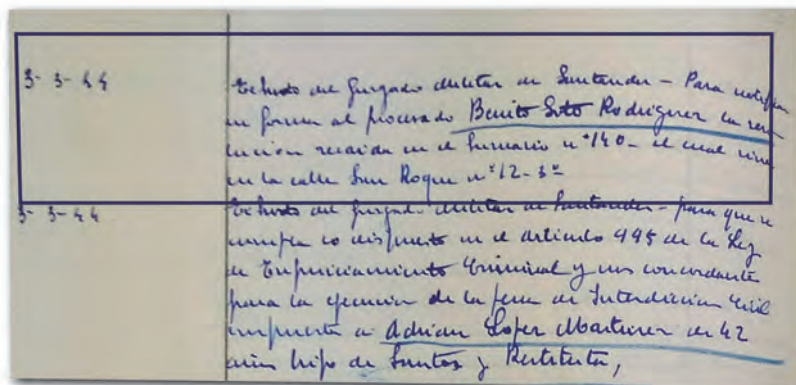 3-3-44
Exhorto del Juzgado Militar de Santander - Para notificar
en forma al procesado Benito Soto Rodriguez la reso
lucion recaida en el Sumario nº 140 - el cual vive
en la calle San Roque nº 12-3º
3-3-44
Exhorto del Juzgado Militar de Santander - para que se
cumpla lo dispuesto en el articulo 995 de la Ley
de Enjuiciamiento Criminal y sus concordante
para la ejecucion de la pena de Interdiccion Civil
impuesta a Adrian Lopez Martinez de 42
años hijo de Santos y Restituta,